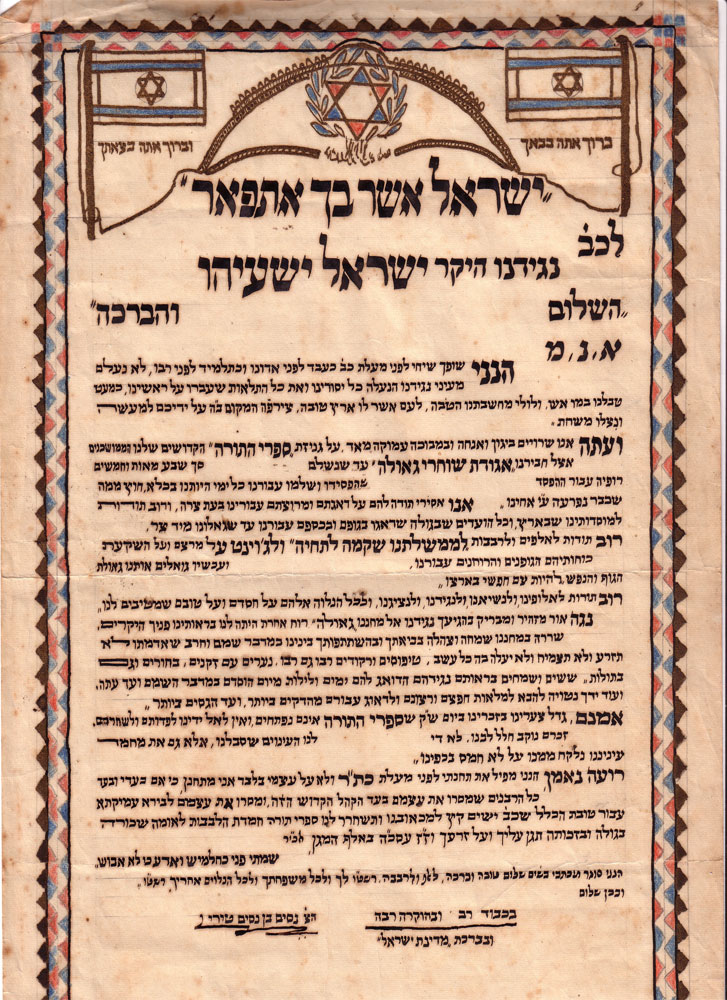 ברוך אתה בבאך
וברוך אתה בצאתך
"ישראל אשר בך אתפאר"
לכב'
נגידנו היקר ישראל ישעיהו
"השלום והברכה"
א. נ. מ
הנני שופך שיחי לפני מעלת כב' כעבד לפני אדונו וכתלמיד לפני רבו, לא נעלם
מעיני נגידנו הנעלה כל יסורינו ואת כל התלאות שעברו על ראשינו, כמעט
טבלנו במו אש, ולולי מחשבתנו הטבה, לעם אשר לו ארץ טובה, צירפה המקום ב"ה על ידיכם למעשה
ונצלו משחת"
ועתה אנו שרויים ביגון ואנחה ובמבוכה עמוקה מאד, על גניזת "ספרי התורה" הקדושים שלנו הממושכנים
אצל חבירנו, "אגודת שוחרי גאולה" עד שנשלם סך שבע מאות וחמשים
רופיה עבור ההפסד שהפסידו ושלמו עבורנו כל ימי היותנו בכלא, חוץ ממה
שכבר נפרעה ע"י אחינו" אנו אסירי תודה להם על דאגתם ומרוצתם עבורינו בעת צרה, ורוב תודה
למוסדותינו שבארץ, וכל הועדים שבגולה שדאגו בגופם ובכספם עבורנו עד שגאלונו מיד צר.
רוב תודות לאלפים ולרבבות לממשלתנו שקמה לתחיה" ולג'וינט על מרצם ועל השקיעה
כוחותיהם הגופנים והרוחנים עבורנו, ועכשיו גואלים אותנו גאולת
הגוף והנפש, להיות עם חפשי בארצו"
רוב תודות לאלופינו ולנשיאנו, ולנגידנו, ולנציגנו, וככל הנלוה אליהם על חסדם ועל טובם שמטיבים לנו"
נגה אור מזהיר ומבריק בהגיעך נגידנו אל מחננו "גאולה" רוח אחרת היתה לנו בראותינו פניך היקרים,
שררה במחננו שמחה וצהלה בביאתך ובהשתתפותך בינינו במדבר שמם וחרב שאדמתו לא
תזרע ולא תצמיח ולא יעלה בה כל עשב, טיפוסים ורקודים רבו גם רבו, נערים עם זקנים, בחורים וגם
בתולות" ששים ושמחים בראותם נגידהם הדואג להם ימים ולילות מיום הוסדם במדבר השמם ועד עתה,
ועוד ידך נטויה להבא למלאות חפצם ורצונם ולדאוג עבורם מהדקים ביותר, ועד הגסים ביותר"
אמנם, גדל צערינו בזכרינו ביום ש"ק שספרי התורה אינם נפתחים, ואין לאל ידינו לפדותם ולשחררם,
זכרם נוקב חלל לבנו, לא די לנו העינוים שסבלנו, אלא גם את מחמד
עינינו נלקח ממנו על לא חמס בכפינו"
רועה נאמן, הנני מפיל את תחנתי לפני מעלת כת"ר ולא על עצמי בלבד אני מתחנן כי אם בעדי ובעד
כל הרבנים שמסרו את עצמם בעד הקהל הקדוש הזה, ומסרו את עצמם לבירא עמיקתא
עבור טובת הכלל שכב' ישים קץ למכאובנו ותשחרר לנו ספרי תורה חמדת הלבבות לאומה
בגולה ובזכותה תגן עליך ועל זרעך באלף המגן,
שמתי פני כחלמיש ואדע כי לא אבוש,
הנני סוגר מכתבי בשים שלום טובה וברכה, ולרבבה לך ולכל משפחתך ולכל הנלוים אחריך
ובכן שלום
בכבוד רב ובהוקרה רבה
ובברכת "מדינת ישראל"
הצ' נסים בן נסים טירי